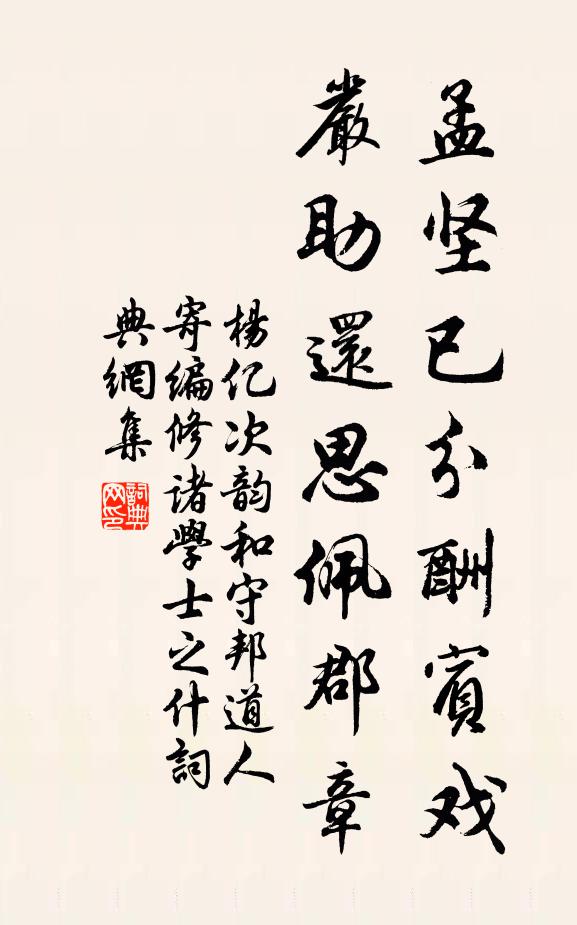 孟坚已分酬賓戏
嚴助還思佩郡章
楊亿次韵和守邦道人
寄编修诸學士之什詞
典網集
詞典
网印